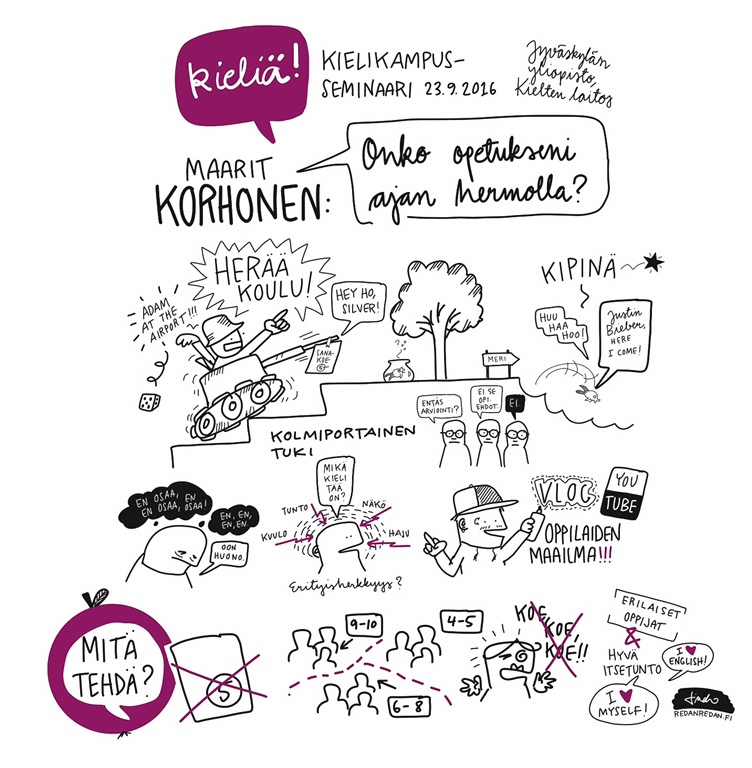 kieliä!
KIELIKAMPUS-
SEMINAARI 23.9.2016
Jyväskylän
yliopisto,
Kielten laitos
MAARIT
KORHONEN:
Onko opetukseni
ajan hermolla?
HERÄÄ
KOULU!
ADAM
AT THE
AIRPORT!!!
HEY HO,
SILVER!
SANA-
KOE
MERI
KIPINÄ
HUU
HAA
HOO!
Justin
Bieber,
HERE
I COME!
KOLMIPORTAINEN
TUKI
ENTÄS
ARVIOINTI?
EI SE
OPI.
EHDOT.
EI.
EN OSAA,
EN OSAA, EN
EN OSAA, OSAA!
EN, EN,
EN, EN.
OON
HUONO.
MIKÄ
KIELI
TÄÄ
ON?
TUNTO
NÄKÖ
KUULO
HAJU
Erityisherkkyys?
VLOG
YOU
TUBE
OPPILAIDEN
MAAILMA!!!
MITÄ
TEHDÄ?
S
9-10
4-5
6-8
KOE,
KOE,
KOE!!
ERILAISET
OPPIJAT
&
HYVÄ
ITSETUNTO
I ♥
ENGLISH!
I ♥
MYSELF!
REDANREDAN.FI